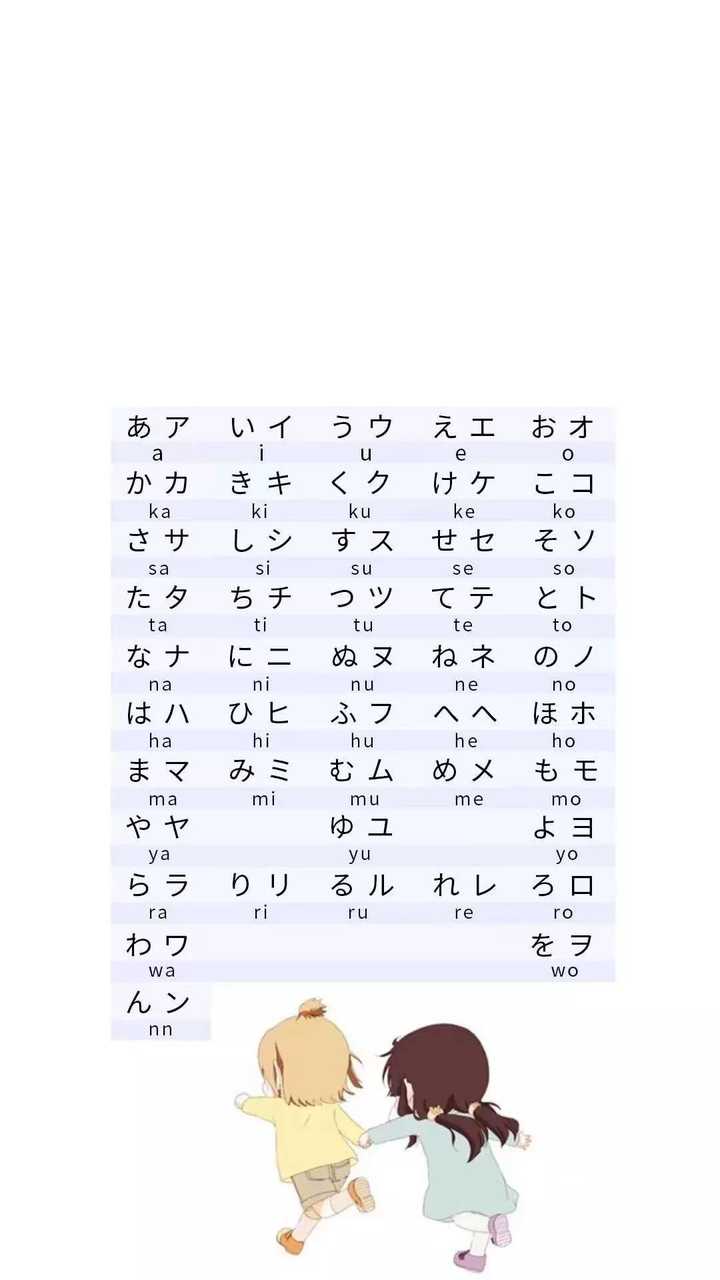 あ ア い イ う ウ え エ お オ
a i u e o
か カ き キ く ク け ケ こ コ
ka ki ku ke ko
さ サ し シ す ス せ セ そ ソ
sa si su se so
た タ ち チ つ ツ て テ と ト
ta ti tu te to
な ナ に ニ ぬ ヌ ね ネ の ノ
na ni nu ne no
は ハ ひ ヒ ふ フ へ ヘ ほ ホ
ha hi hu he ho
ま マ み ミ む ム め メ も モ
ma mi mu me mo
や ヤ ゆ ユ よ ヨ
ya yu yo
ら ラ り リ る ル れ レ ろ ロ
ra ri ru re ro
わ ワ を ヲ
wa wo
ん ン
nn